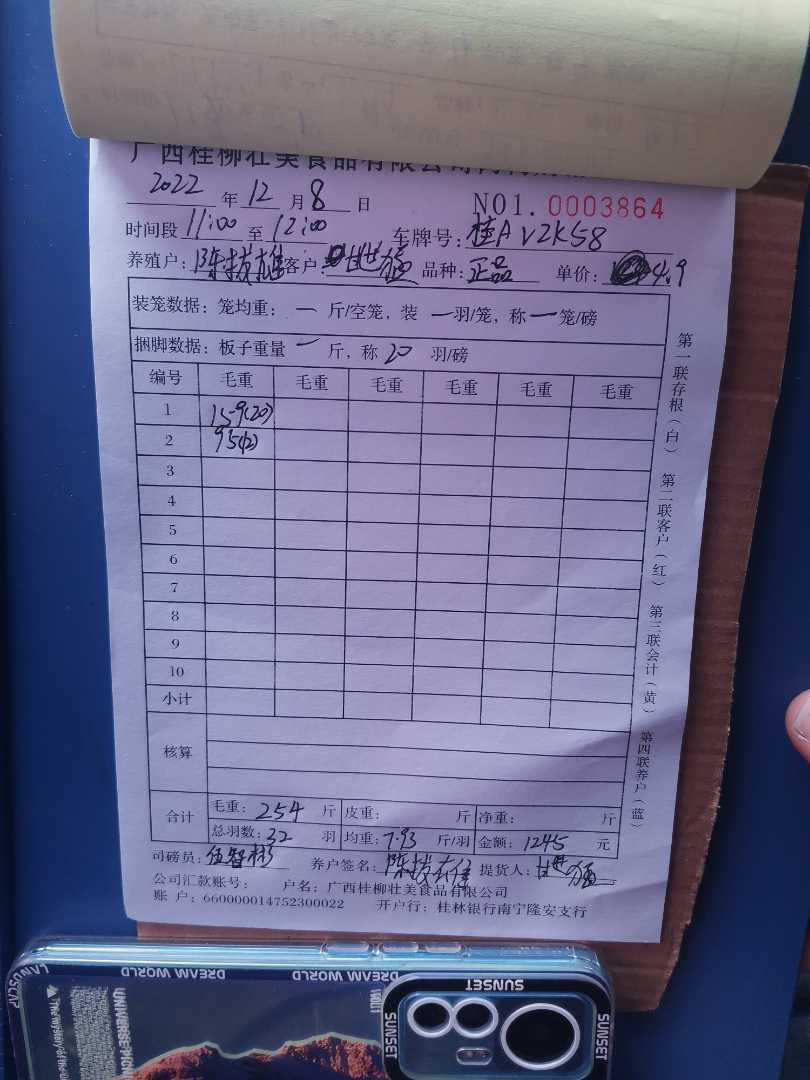 广西桂柳壮美食品有限公司
2022 年 12 月 8 日 NO1. 0003864
时间段 11:00 至 12:00 车牌号: 桂A V2K58
养殖户: 陈拔雄 客户: 甘世猛 品种: 正品 单价: 4.9
装笼数据: 笼均重: 一 斤/空笼, 装 一 羽/笼, 称 一 笼/磅
捆脚数据: 板子重量 一 斤, 称 20 羽/磅
编号 毛重 毛重 毛重 毛重 毛重 毛重
1 159(20)
2 95(12)
3
4
5
6
7
8
9
10
小计
核算
合计 毛重: 254 斤 皮重: 斤 净重: 斤
总羽数: 32 羽 均重: 7.93 斤/羽 金额: 1245 元
司磅员: 伍智彬 养户签名: 陈拔雄 提货人: 甘世猛
公司汇款账号: 户名: 广西桂柳壮美食品有限公司
账 户: 660000014752300022 开户行: 桂林银行南宁隆安支行
第一联存根(白) 第二联客户(红) 第三联会计(黄) 第四联养户(蓝)
DREAM WORLD DREAM WORLD
LANDSCAP
SUNSET
SUNSET
SUNSET